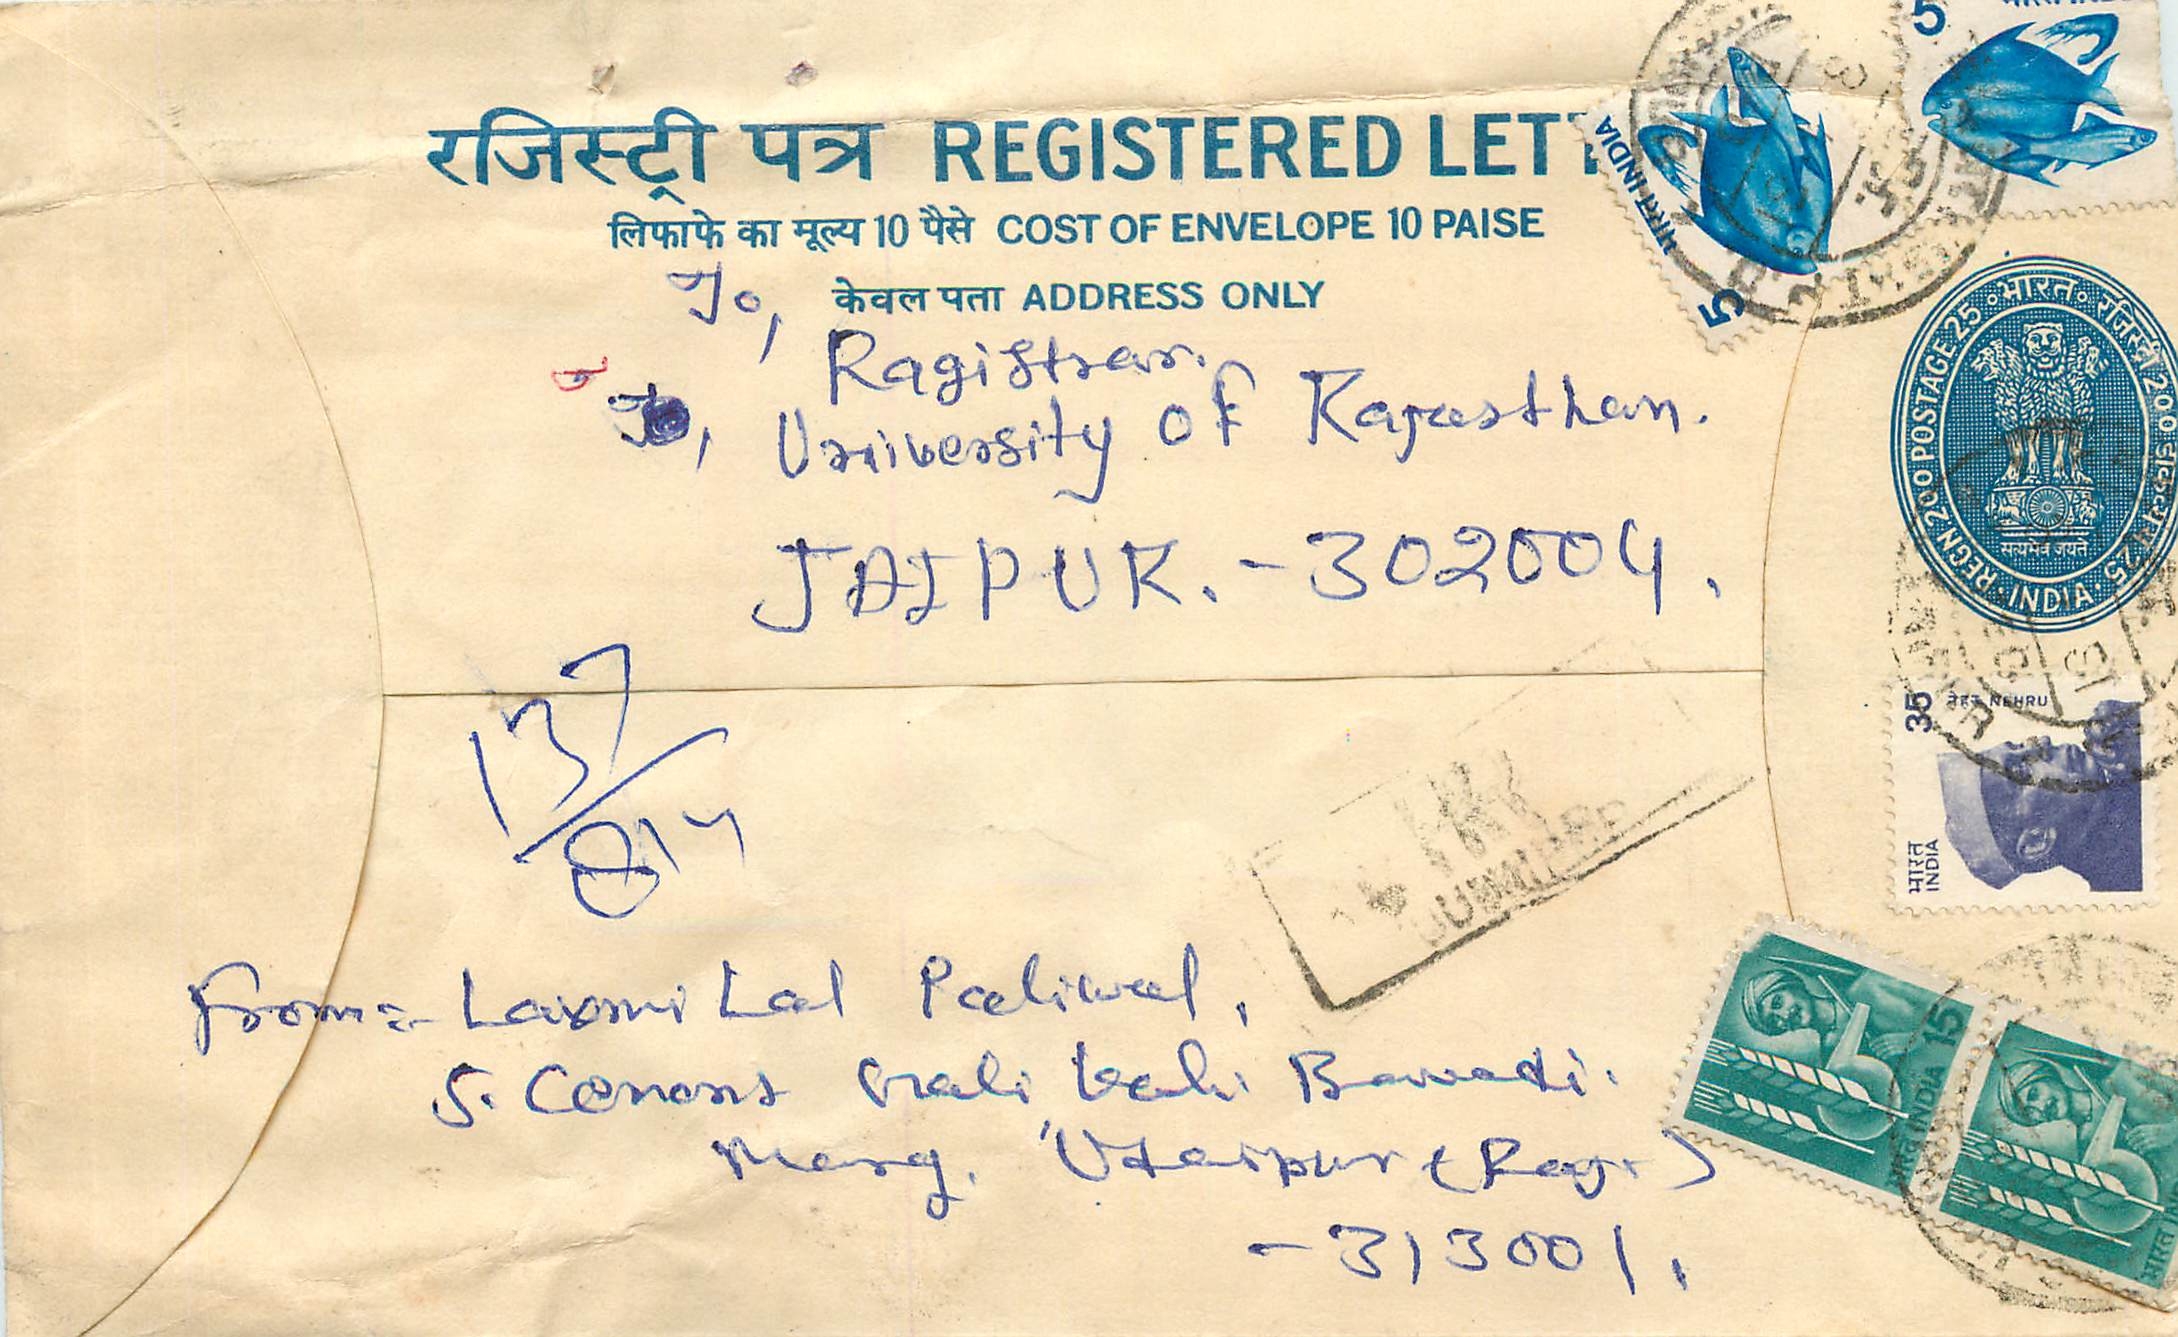 रजिस्ट्री पत्र REGISTERED LETT
लिफाफे का मूल्य 10 पैसे COST OF ENVELOPE 10 PAISE
केवल पता ADDRESS ONLY
To,
Ragistrar.
To,
University of Rajasthan.
JAIPUR. - 302004.
From:- Laxmi Lal Paliwal,
Bawadi.
Marg, Udaipur (Raj.)
- 313001.
5
भारत INDIA
5
भारत INDIA
REGN. 200 POSTAGE 25 भारत रजिस्ट्री 200
सत्यमेव जयते
INDIA
35 नेहरू NEHRU
भारत INDIA
15
भारत INDIA
भारत